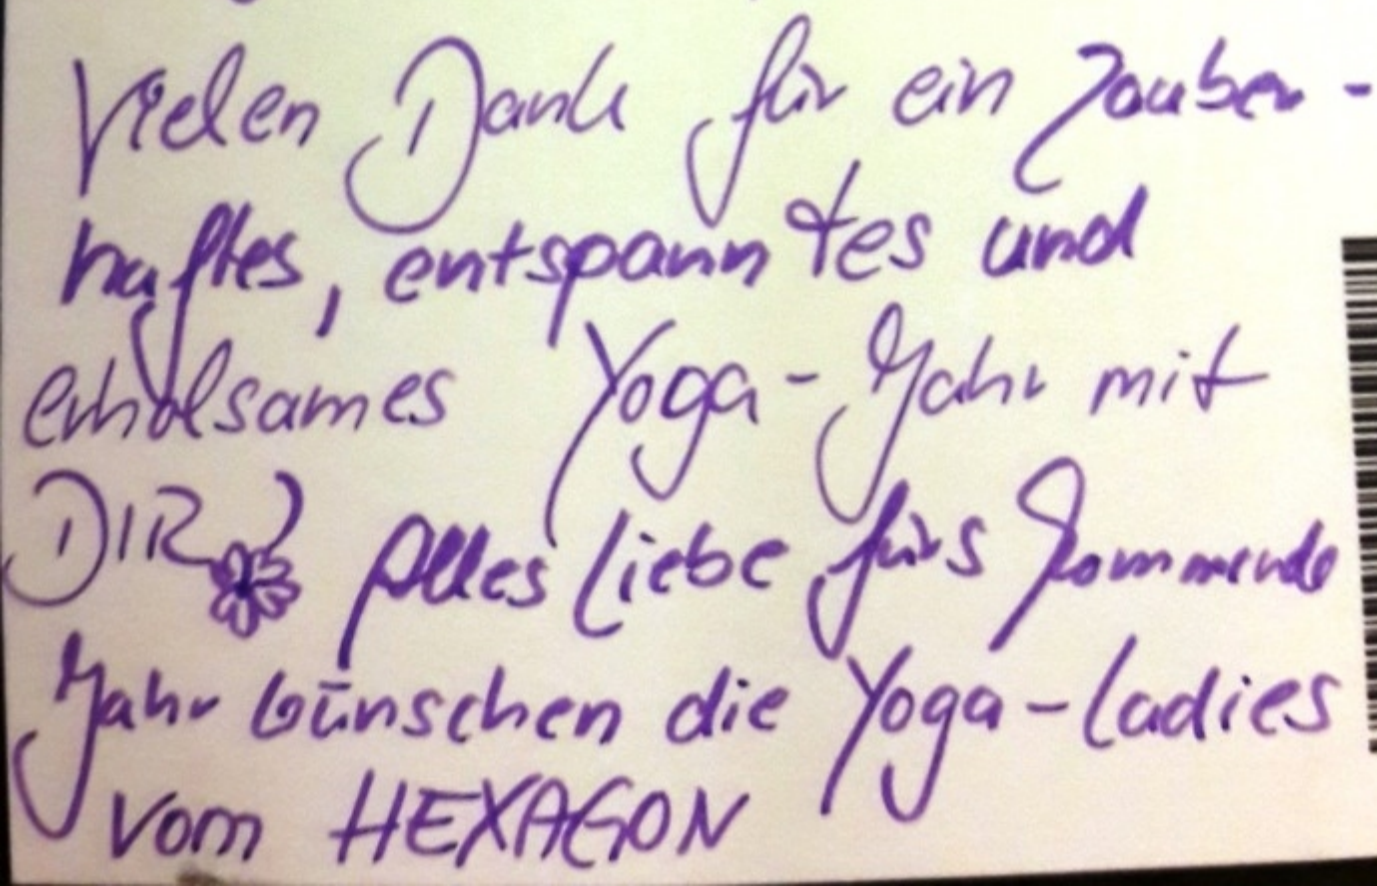 Vielen Dank für ein zauber-
haftes, entspanntes und
erholsames Yoga-Jahr mit
DIR Alles Liebe fürs kommende
Jahr wünschen die Yoga-Ladies
vom HEXAGON